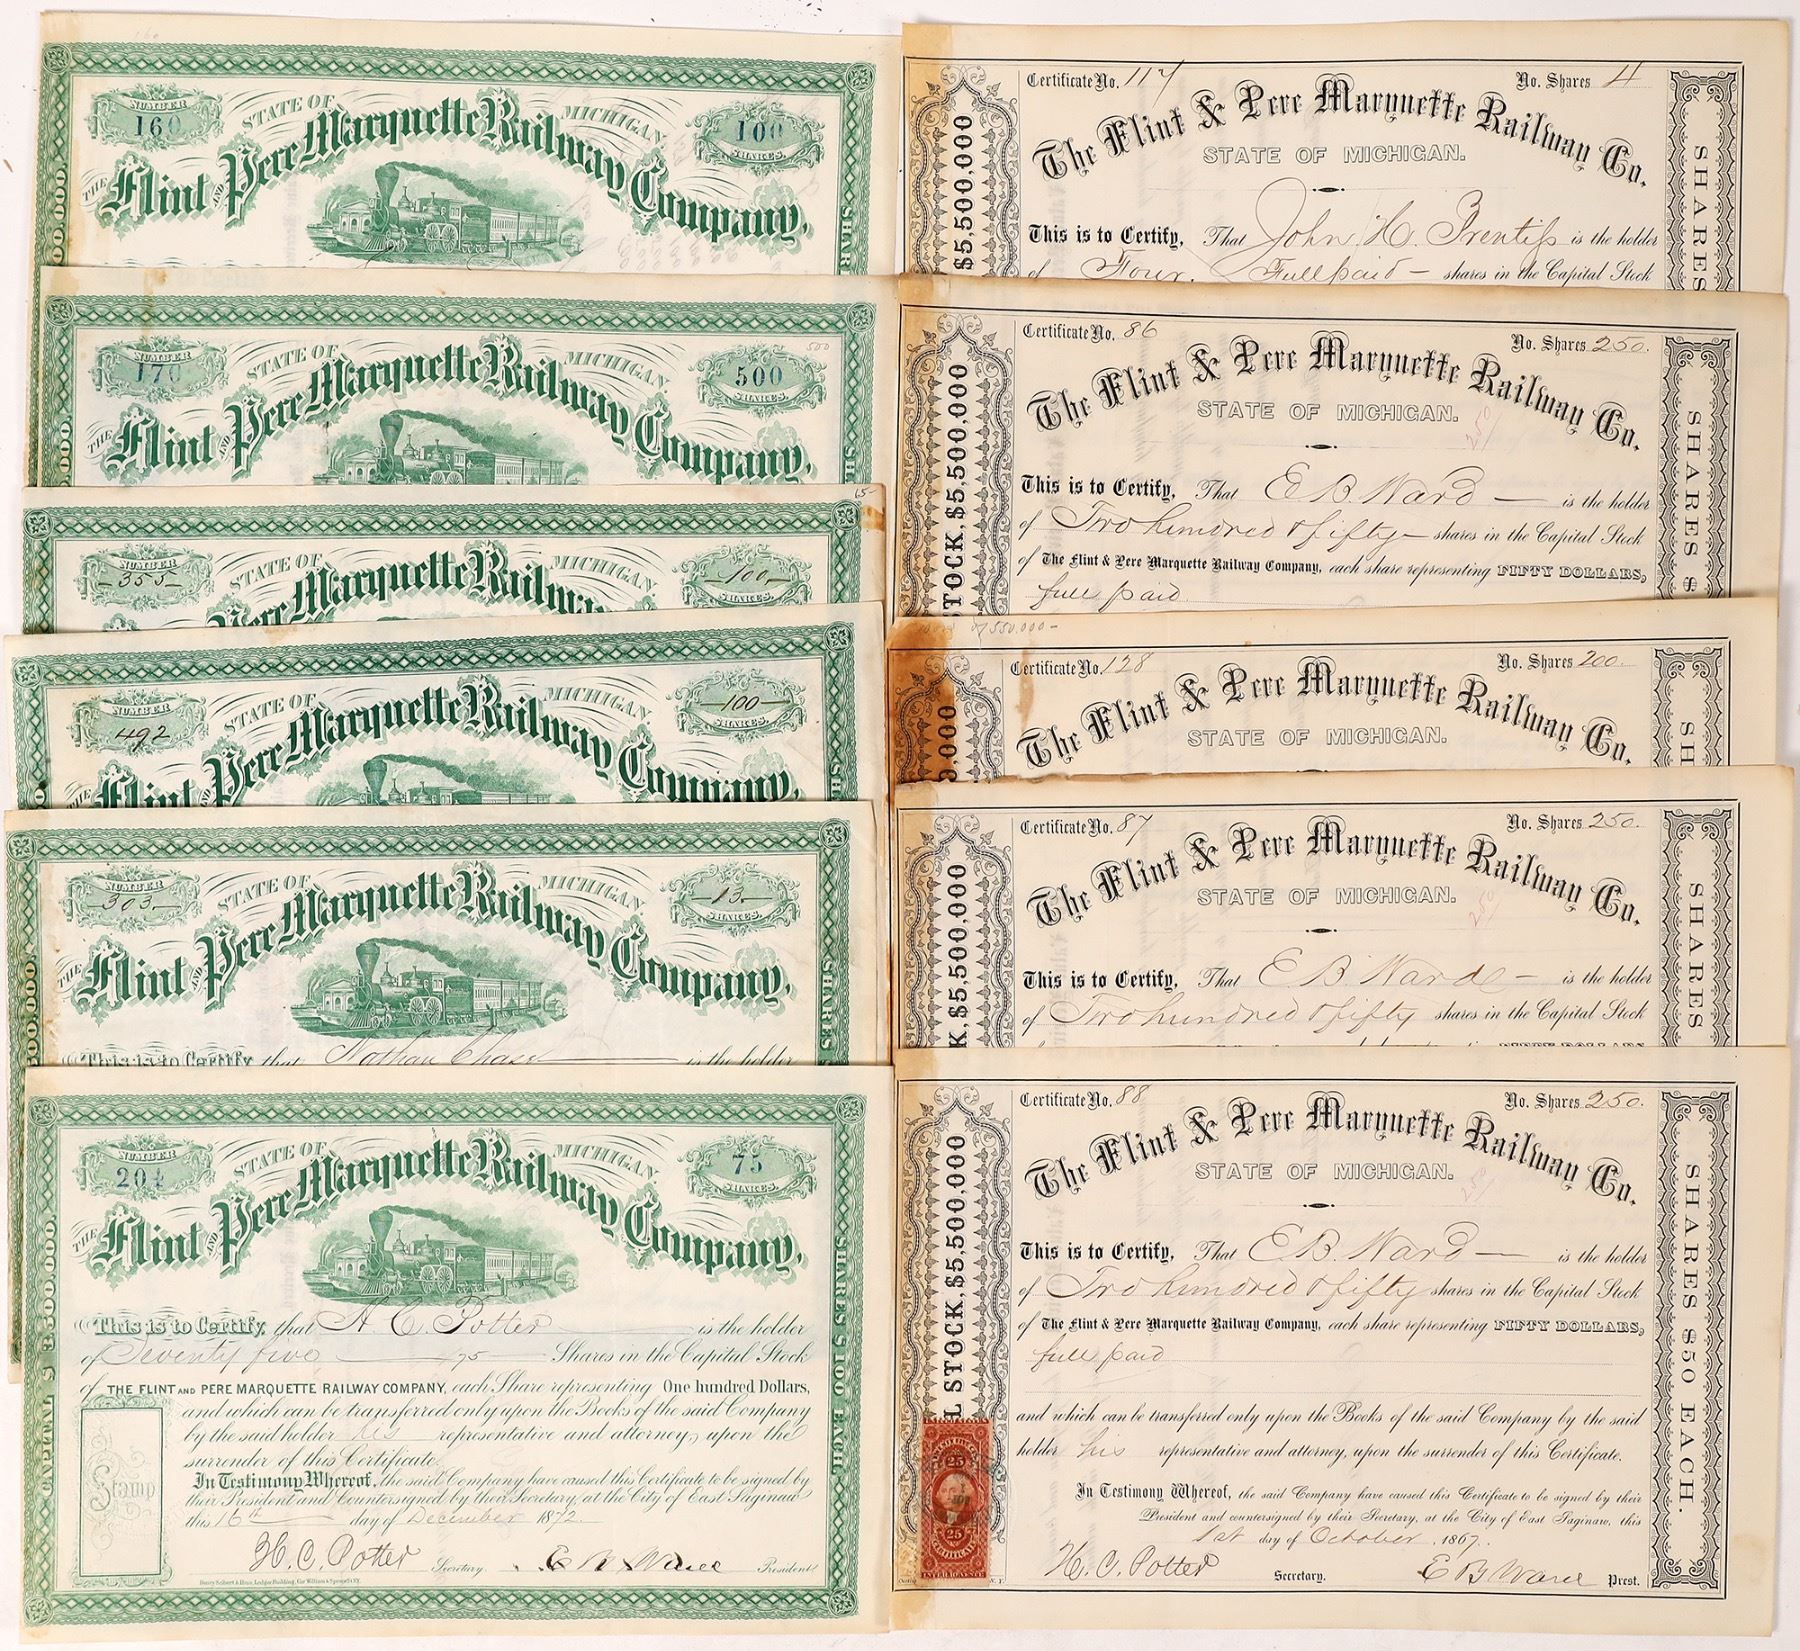 160
NUMBER
160
STATE OF MICHIGAN
100
SHARES.
THE Flint AND Pere Marquette Railway Company,
00,000.
SHAR
NUMBER
170
STATE OF MICHIGAN
500
500
SHARES.
THE Flint AND Pere Marquette Railway Company,
0,000.
SH
65-
NUMBER
-355-
STATE OF MICHIGAN
-100-
SHARES.
Pere Marquette Railway
NUMBER
492
STATE OF MICHIGAN
-100-
SHARES.
THE Flint AND Pere Marquette Railway Company,
NUMBER
-303-
STATE OF MICHIGAN
-13-
SHARES.
THE Flint AND Pere Marquette Railway Company,
300,000.
SHARES
This is to Certify, that Nathan Chase is the holder
NUMBER
204
STATE OF MICHIGAN
75
SHARES.
THE Flint AND Pere Marquette Railway Company,
This is to Certify, that H. C. Potter is the holder
of Seventy five 75 Shares in the Capital Stock
of THE FLINT AND PERE MARQUETTE RAILWAY COMPANY, each Share representing One hundred Dollars,
and which can be transferred only upon the Books of the said Company
by the said holder his representative and attorney, upon the
surrender of this Certificate.
In Testimony Whereof, the said Company have caused this Certificate to be signed by
their President and Countersigned by their Secretary, at the City of East Saginaw
this 16th day of December 1872.
H. C. Potter Secretary. E B Ward President
Stamp
CAPITAL $3,300,000.
SHARES $100 EACH.
Certificate No. 117 No. Shares 4
The Flint & Pere Marquette Railway Co.
STATE OF MICHIGAN.
This is to Certify, That John H. Prentiss is the holder
of Four. Full paid - shares in the Capital Stock
$5,500,000
SHARES
Certificate No. 86 No. Shares 250.
The Flint & Pere Marquette Railway Co.
STATE OF MICHIGAN.
250
This is to Certify, That E B Ward is the holder
of Two hundred & fifty shares in the Capital Stock
of The Flint & Pere Marquette Railway Company, each share representing FIFTY DOLLARS,
full paid.
STOCK, $5,500,000
SHARES $
Certificate No. 128 No. Shares 200.
The Flint & Pere Marquette Railway Co.
STATE OF MICHIGAN.
0,000
SH
Certificate No. 87 No. Shares 250.
The Flint & Pere Marquette Railway Co.
STATE OF MICHIGAN.
250
This is to Certify, That E B Ward is the holder
of Two hundred & fifty shares in the Capital Stock
K, $5,500,000
SHARES
Certificate No. 88 No. Shares 250.
The Flint & Pere Marquette Railway Co.
STATE OF MICHIGAN.
250
This is to Certify, That E B Ward is the holder
of Two hundred & fifty shares in the Capital Stock
of The Flint & Pere Marquette Railway Company, each share representing FIFTY DOLLARS,
full paid
and which can be transferred only upon the Books of the said Company by the said
holder his representative and attorney, upon the surrender of this Certificate.
In Testimony Whereof, the said Company have caused this Certificate to be signed by their
President and countersigned by their Secretary, at the City of East Saginaw, this
1st day of October, 1867.
H. C. Potter Secretary. E B Ward Prest.
L STOCK, $5,500,000
SHARES $50 EACH.
25
25
CERTIFICATE